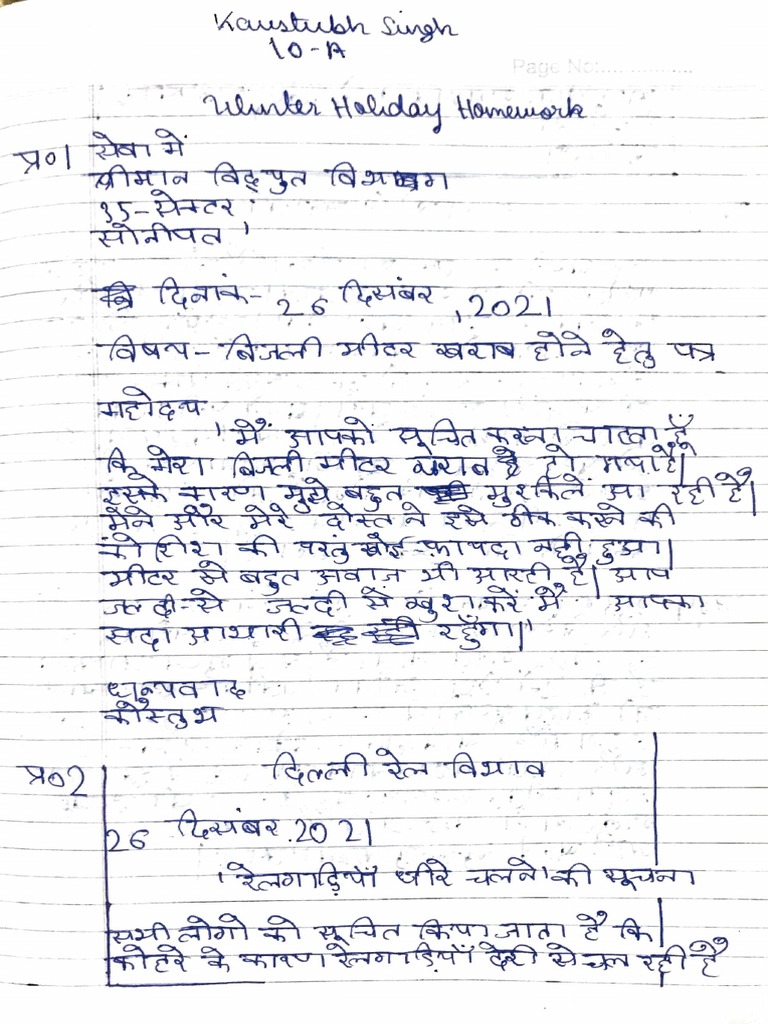 Kaustubh Singh
10-A
Page No:................
Winter Holiday Homework
प्र०1 सेवा में
श्रीमान विद्युत विभाग
35-सेक्टर
सोनीपत ।
दिनांक- 26 दिसंबर, 2021
विषय - बिजली मीटर खराब होने हेतु पत्र
महोदय
'मैं आपको सूचित करना चाहता हूँ
कि मेरा बिजली मीटर खराब हो गया है|
इसके कारण मुझे बहुत मुश्किलें आ रही हैं|
मैंने और मेरे दोस्त ने इसे ठीक करने की
कोशिश की परंतु कोई फ़ायदा नहीं हुआ|
मीटर से बहुत अवाज़ भी आरही है| आप
जल्दी-से जल्दी से खुश करें मैं आपका
सदा आभारी रहूँगा|'
धन्यवाद
कौस्तुभ
प्र०2 दिल्ली रेल विभाव
26 दिसंबर 2021
'रेलगाड़ियाँ धीरे चलने' की सूचना
सभी लोगो को सूचित किया जाता है कि
कोहरे के कारण रेलगाड़ियाँ देरी से चल रही है